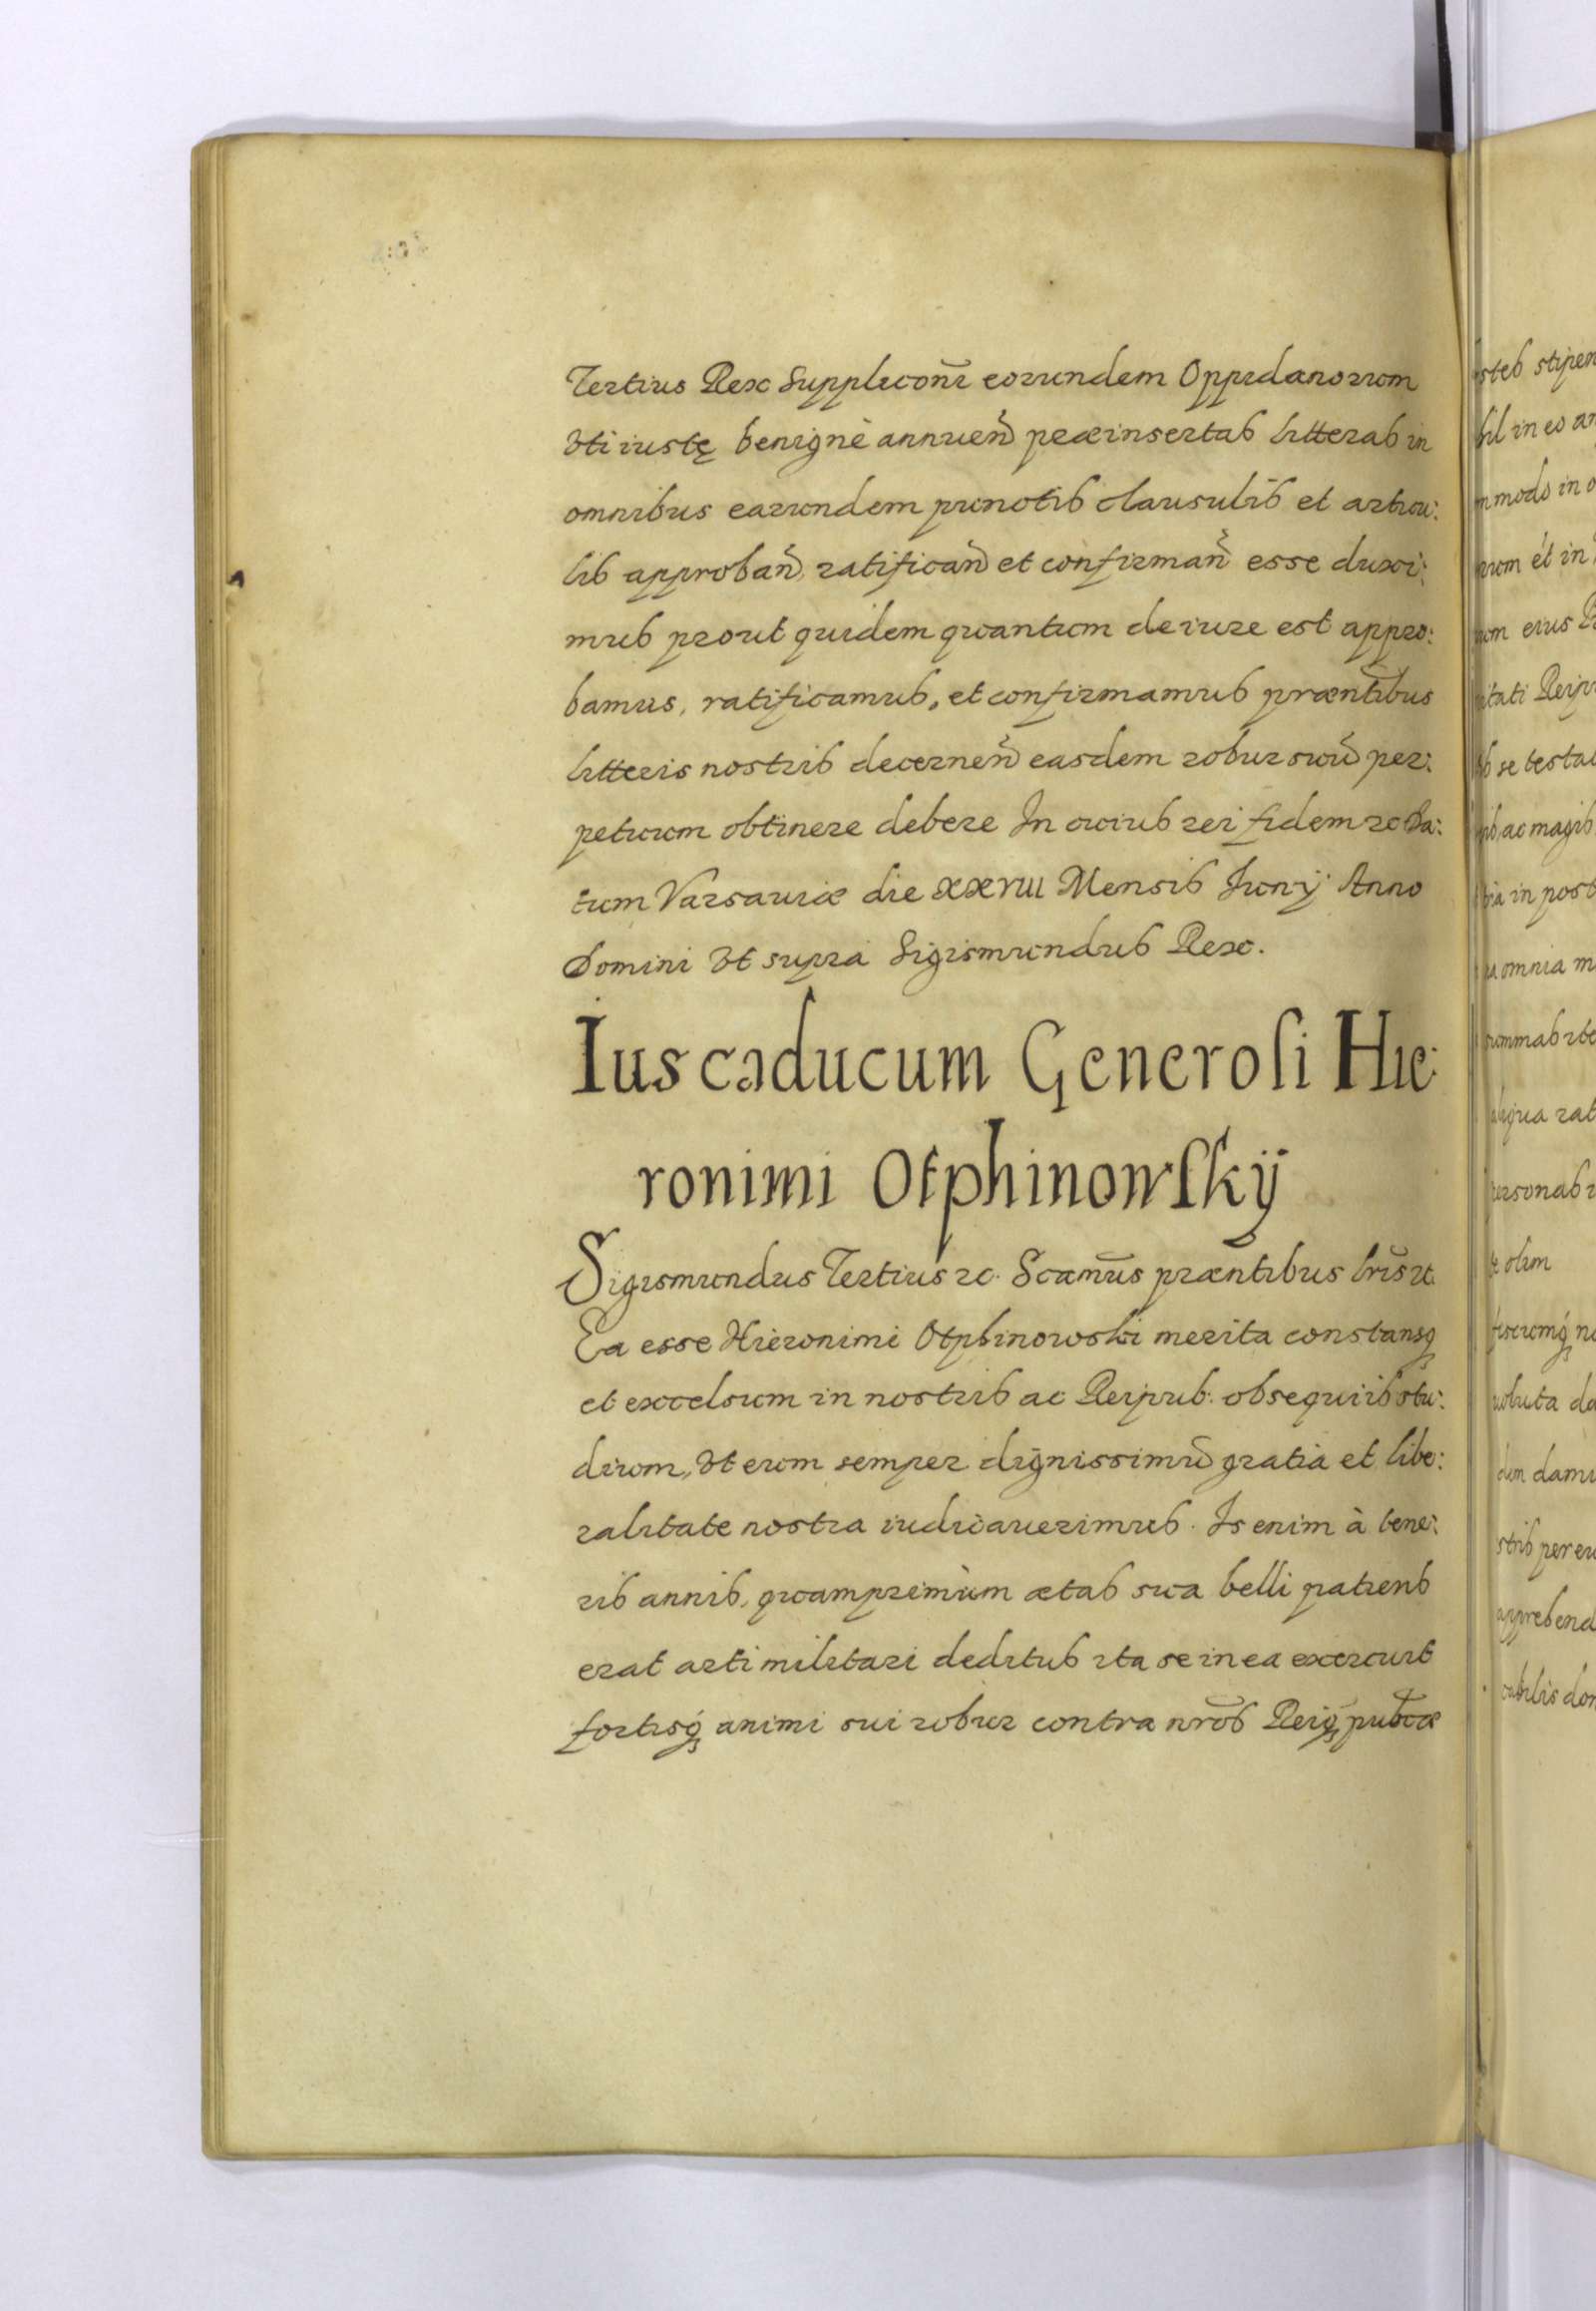 Tertius Rex Suppliconi eorundem Oppidanorum
Vti iustę benignè annuen̄ præinsertas litteras in
omnibus earundem punctis clausulis et articu:
lis approban̄, ratifican̄ et confirman̄ esse duxi:
mus prout quidem quantum de iure est appro:
bamus, ratificamus, et confirmamus præn̄tibus
litteris nostris decernen̄ easdem robur suū per:
petuum obtinere debere In cuius rei fidem ꝛc Da:
tum Varsauiæ die XXVIII Mensis Junÿ Anno
Domini Vt supra Sigismundus Rex.
Ius caducum Generosi Hie:
ronimi Otphinowskÿ
Sigismundus Tertius ꝛc. Scam̄us præn̄tibus lr̄is ꝛc.
Ea esse Hieronimi Otphinowski merita constansq
et excelsum in nostris ac Reipub: obsequiis stu:
dium, Vt eum semper dignissimū gratià et libe:
ralitate nostra iudicauerimus. Is enim à tene:
ris annis, quamprimùm ætas sua belli patiens
erat arti militari deditus ita se in ea exercuit
fortisq́ animi sui robur contra nr̄os Reiq̨ pub̄cæ
steb stipen
hil in eo an
modo in o
et in
eius
itati Reip
se testa
ac magis
in post
omnia m
summas
rat
personas
olim
da
dam
stris per eu
apprehend